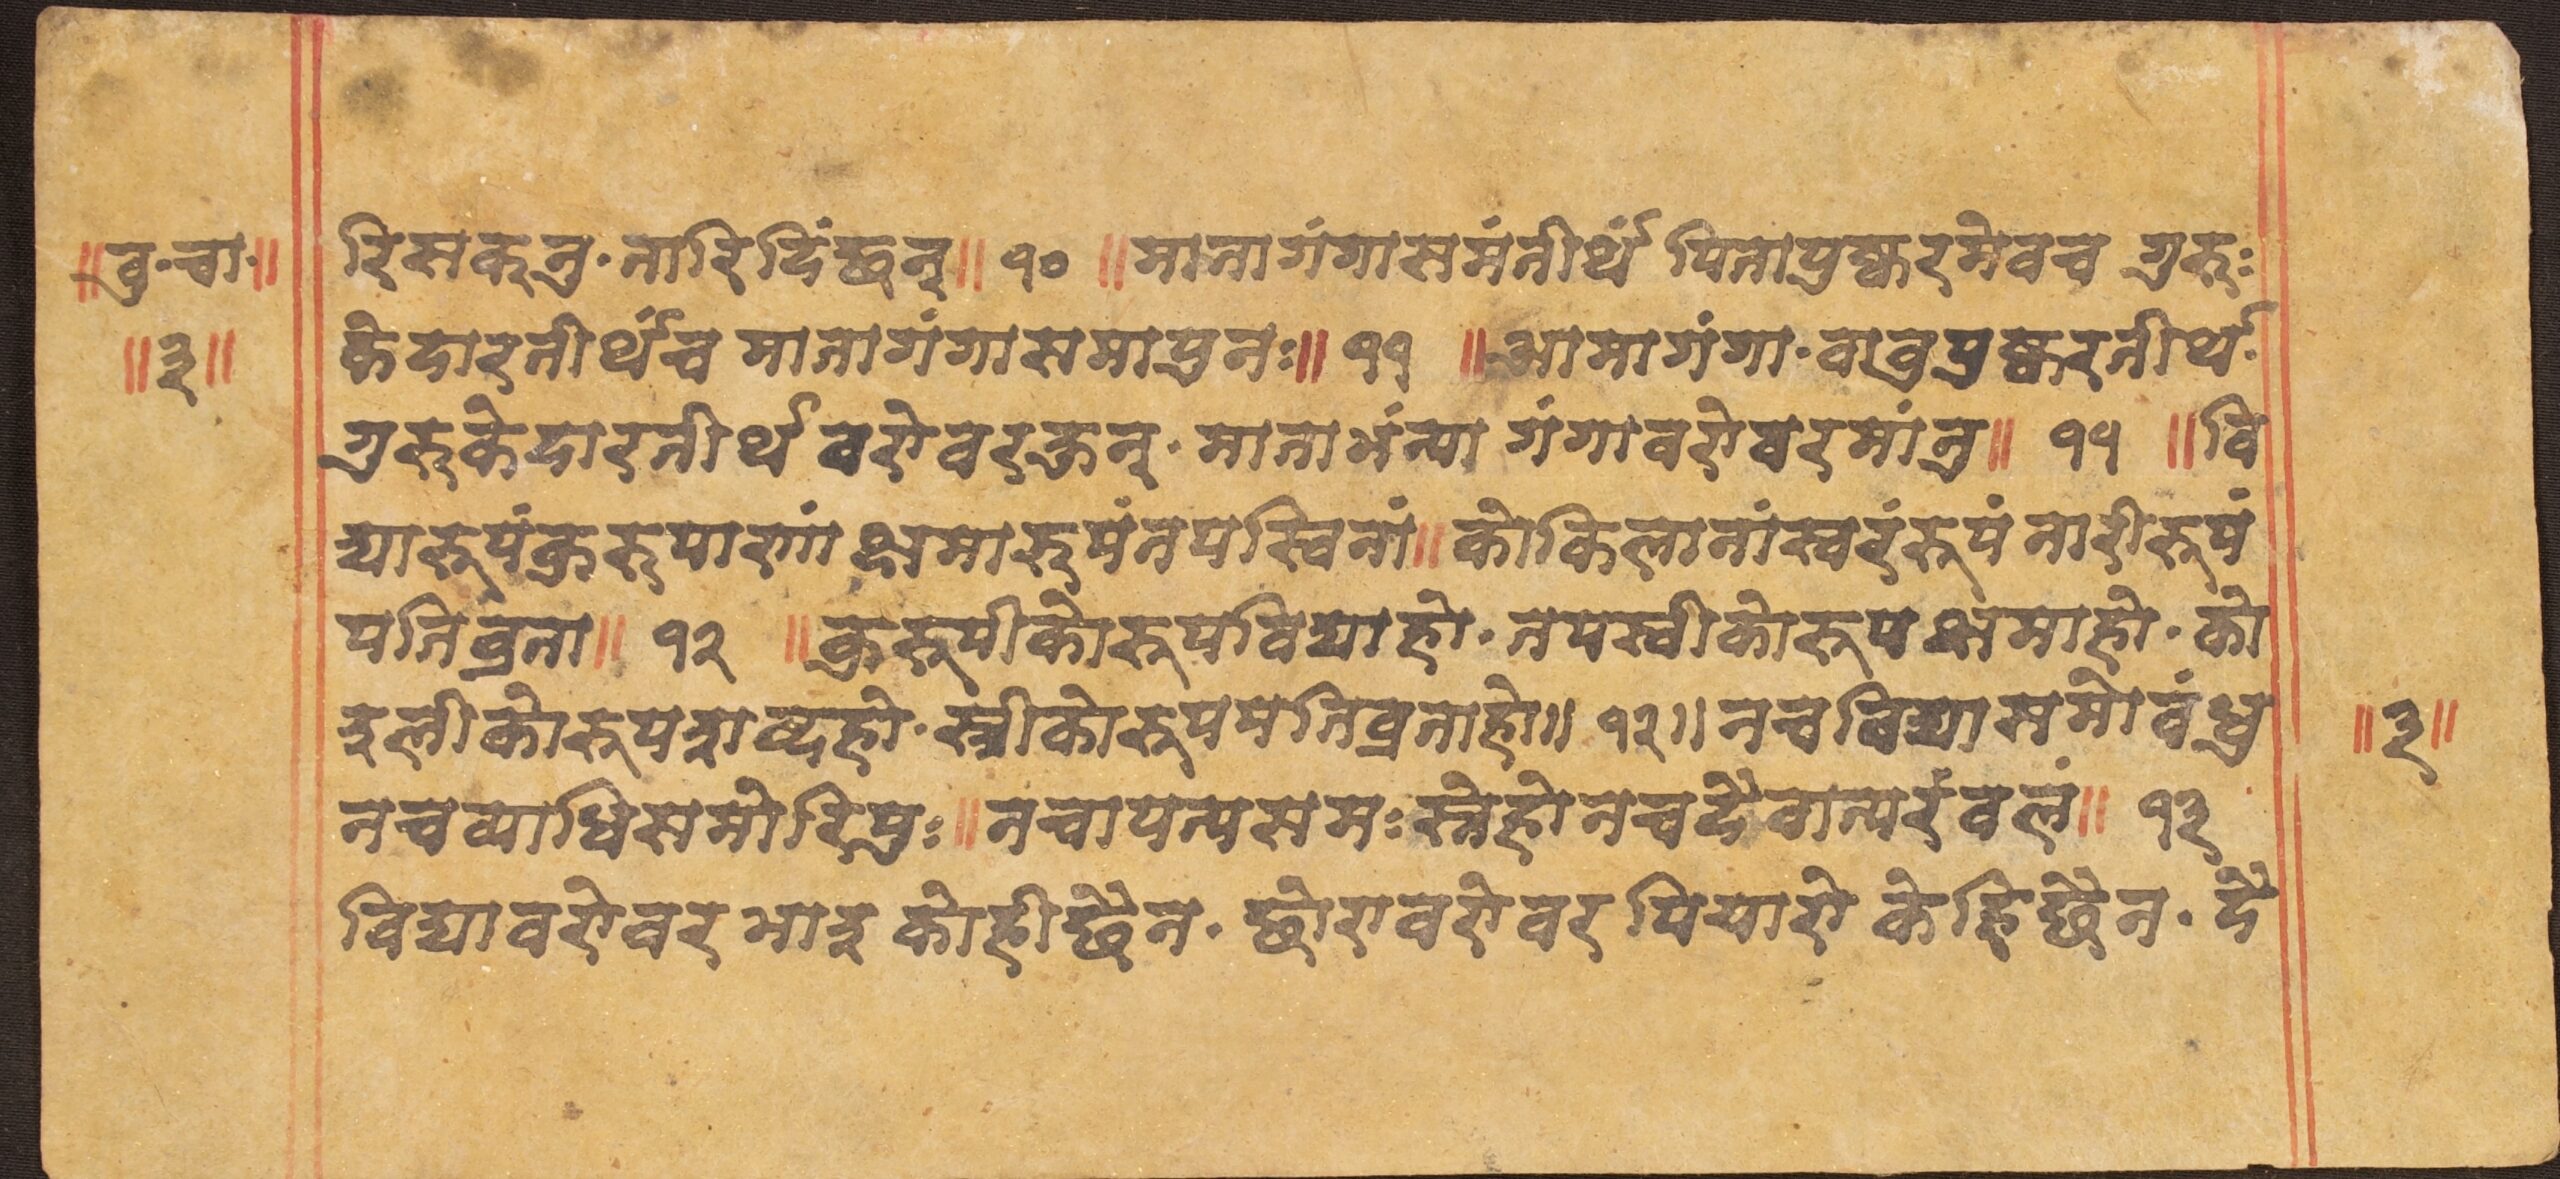 ॥वु·चा·॥
॥३॥
रिसक्नु·नारिदिंछन्॥ १० ॥मातागंगासमंतीर्थं पितापुष्करमेवच गुरुः
केदारतीर्थंच मातागंगासमापुनः॥ ११ ॥आमागंगा·वावुपुष्करतीर्थ·
गुरुकेदारतीर्थ वरोवरछन्·माताभंन्या गंगावरोवरमांनु॥ ११ ॥वि
द्यारूपंकुरुपाणां क्षमारूपंतपस्विनां॥कोकिलानांस्वरंरूपं नारीरूपं
पतिव्रता॥ १२ ॥कुरूपीकोरूपविद्याहो·तपस्वीकोरूपक्षमाहो·को
इलीकोरूपशव्दहो·स्त्रीकोरूपपतिव्रताहो॥ १२॥नचविद्यासमोवंधु
नचव्याधिसमोरिपुः॥नचापत्यसमःस्नेहोनचदैवात्परंवलं॥ १३
विद्यावरोवर भाइ कोहीछैन·छोरावरोवर पियारो केहिछैन·दै
॥३॥